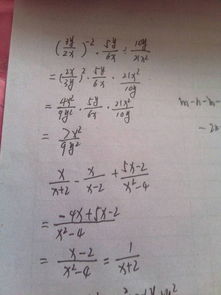 (3y/2x)^-2 · 5y/6x ÷ 10y/21x²
= (2x/3y)² · 5y/6x · 21x²/10y
= 4x²/9y² · 5y/6x · 21x²/10y
= 7x²/9y²
x/x+2 - x/x-2 + 5x-2/x²-4
= -4x+5x-2/x²-4
= x-2/x²-4 = 1/x+2